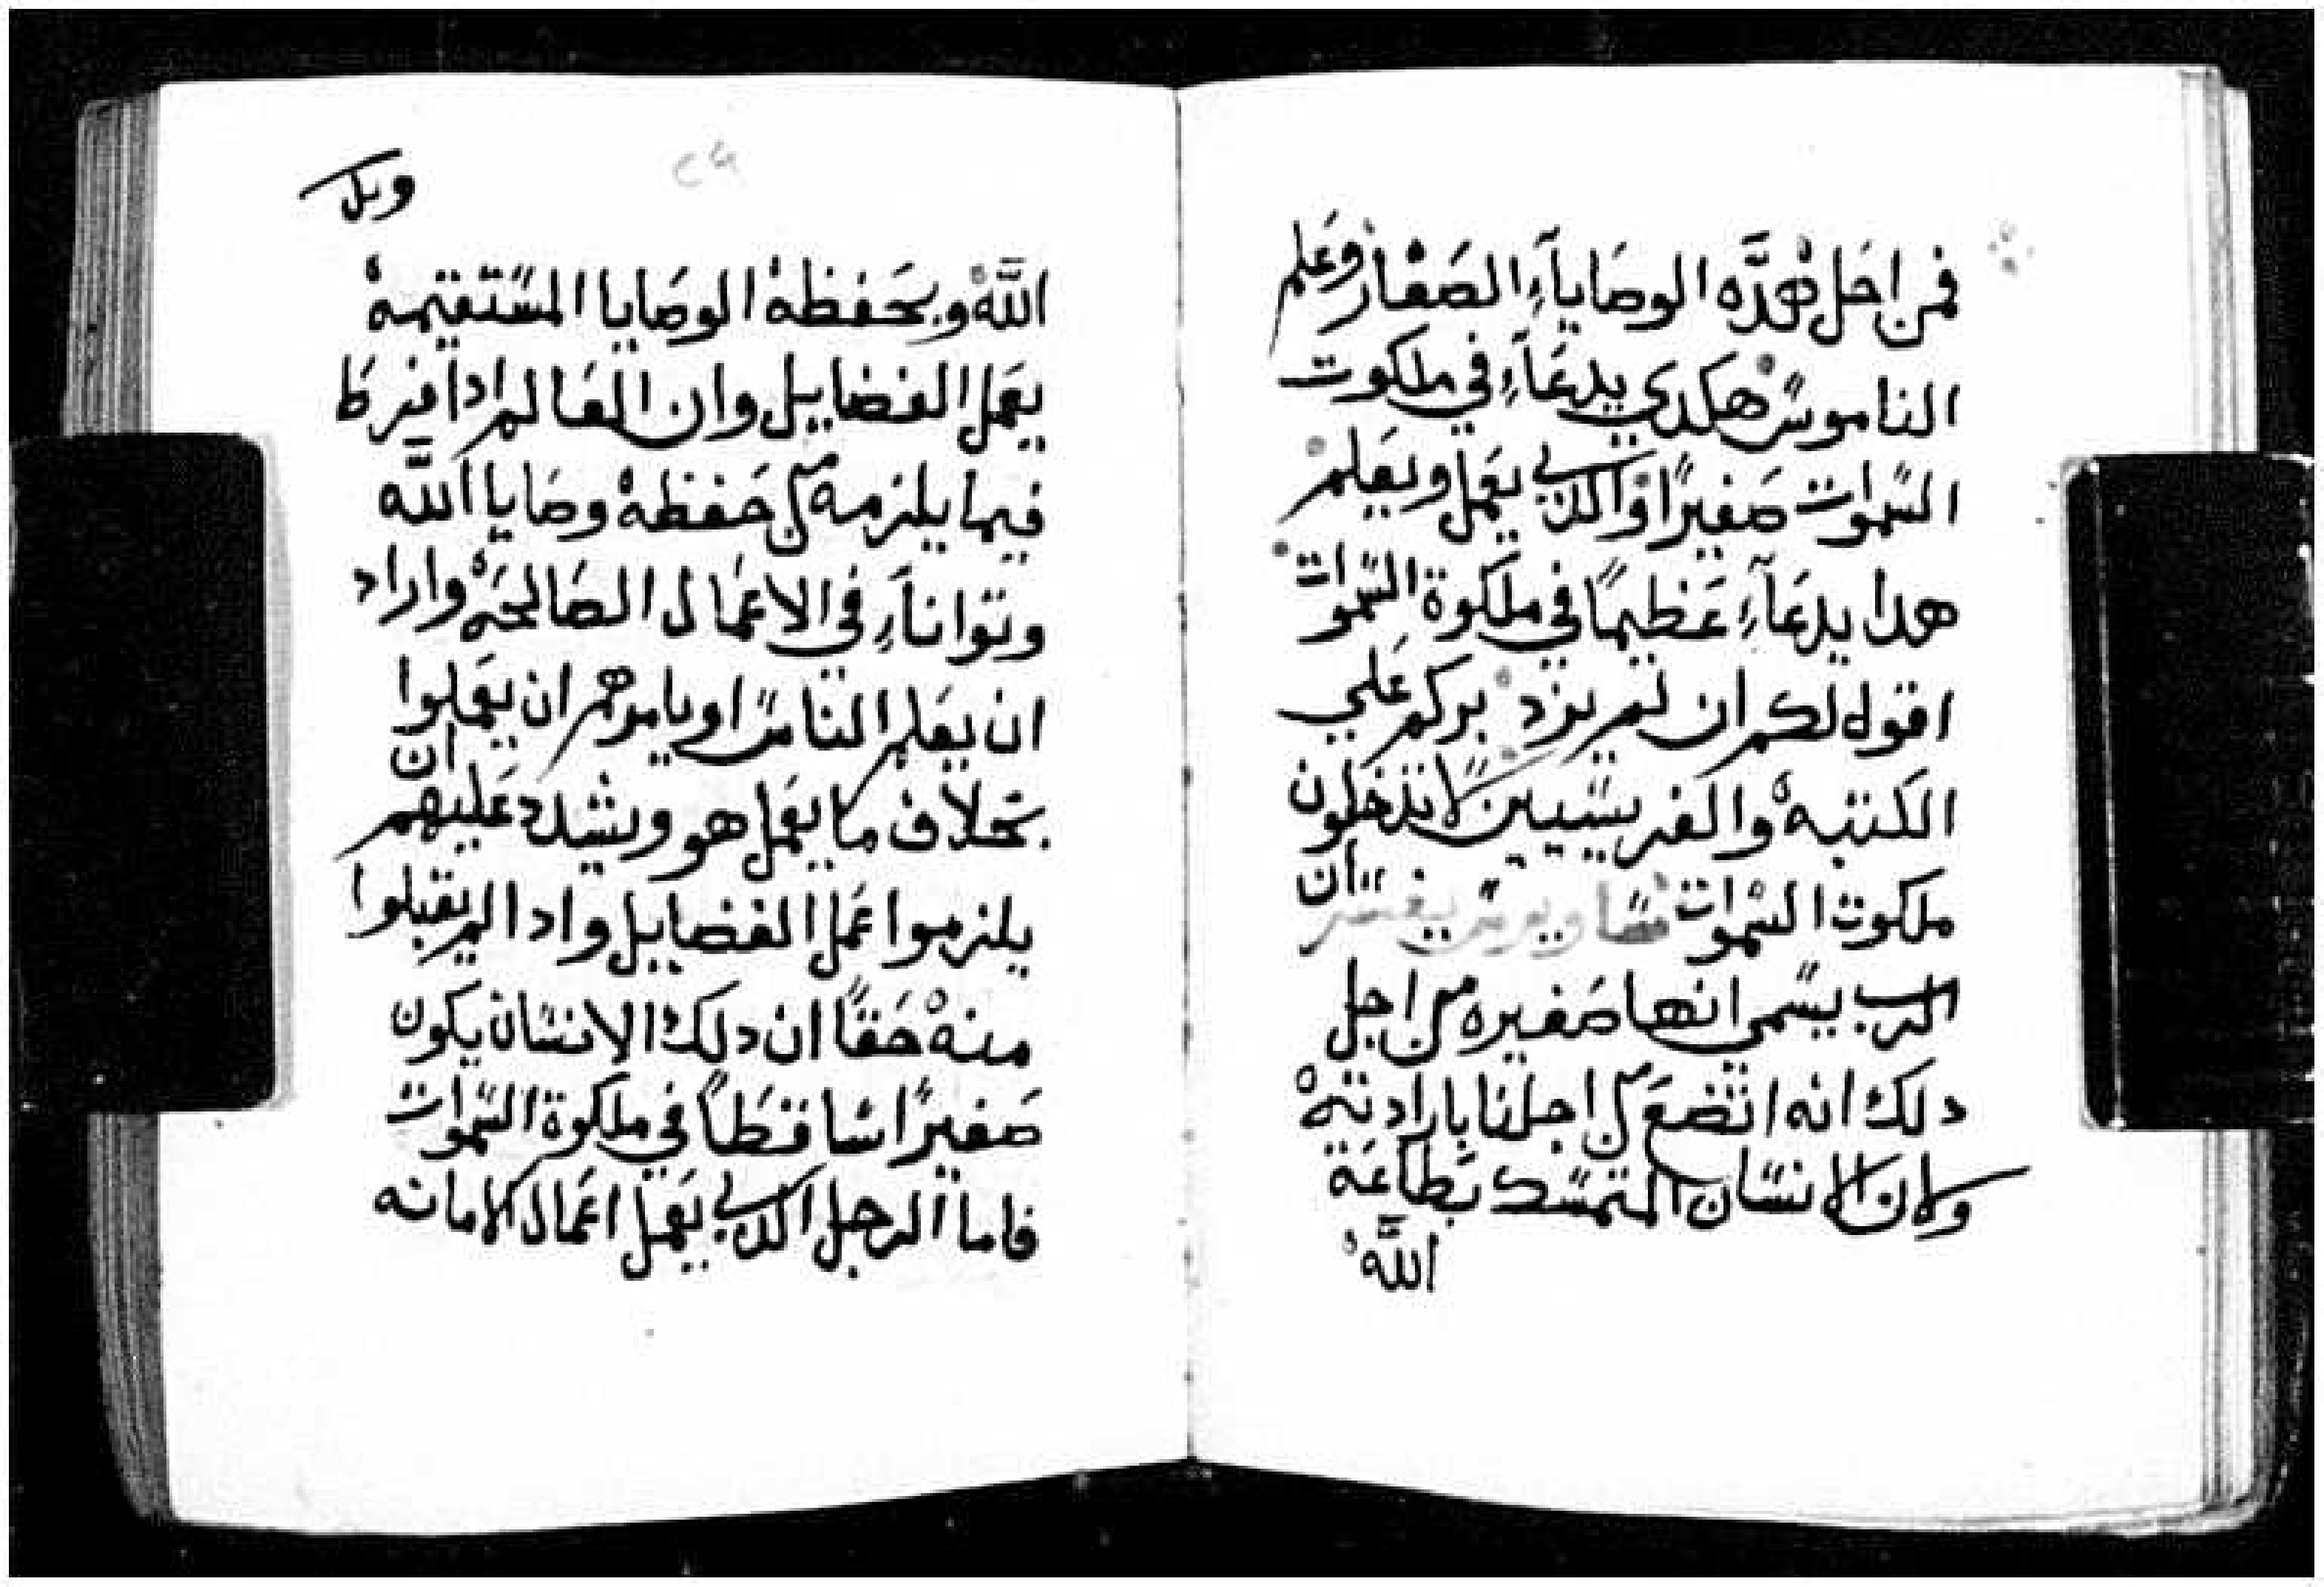 فمن احل هذه الوصاياء الصغار وعلم
الناموس هكدي يدعاء في ملكوت
السموات صغيرًا والدي يعمل ويعلم
هدا يدعاء عظيمًا في ملكوة السموات
اقول لكم ان لم يزد بركم علي
الكتبه والفريسيين لا تدخلون
ملكوت السموات ان
الرب يسمي انها صغيره من اجل
دلك انه اتضع من اجلنا بارادته
ولان الانسان المتمسك بطاعة
الله
وبك
الله وبحفظه الوصايا المستقيمه
يعمل الفضايل وان العالم ادا فرط
فيما يلزمه من حفظه وصايا الله
وتواناء في الاعمال الصالحه واراد
ان يعلم الناس او يامرهم ان يعملوا
بخلاف ما يعمل هو ويشدد عليهم ان
يلزموا عمل الفضايل وادا لم يقبلوا
منه حقًا ان دلك الانسان يكون
صغيرًا ساقطًا في ملكوة السموات
فاما الرجل الدي يعمل اعمال الامانه